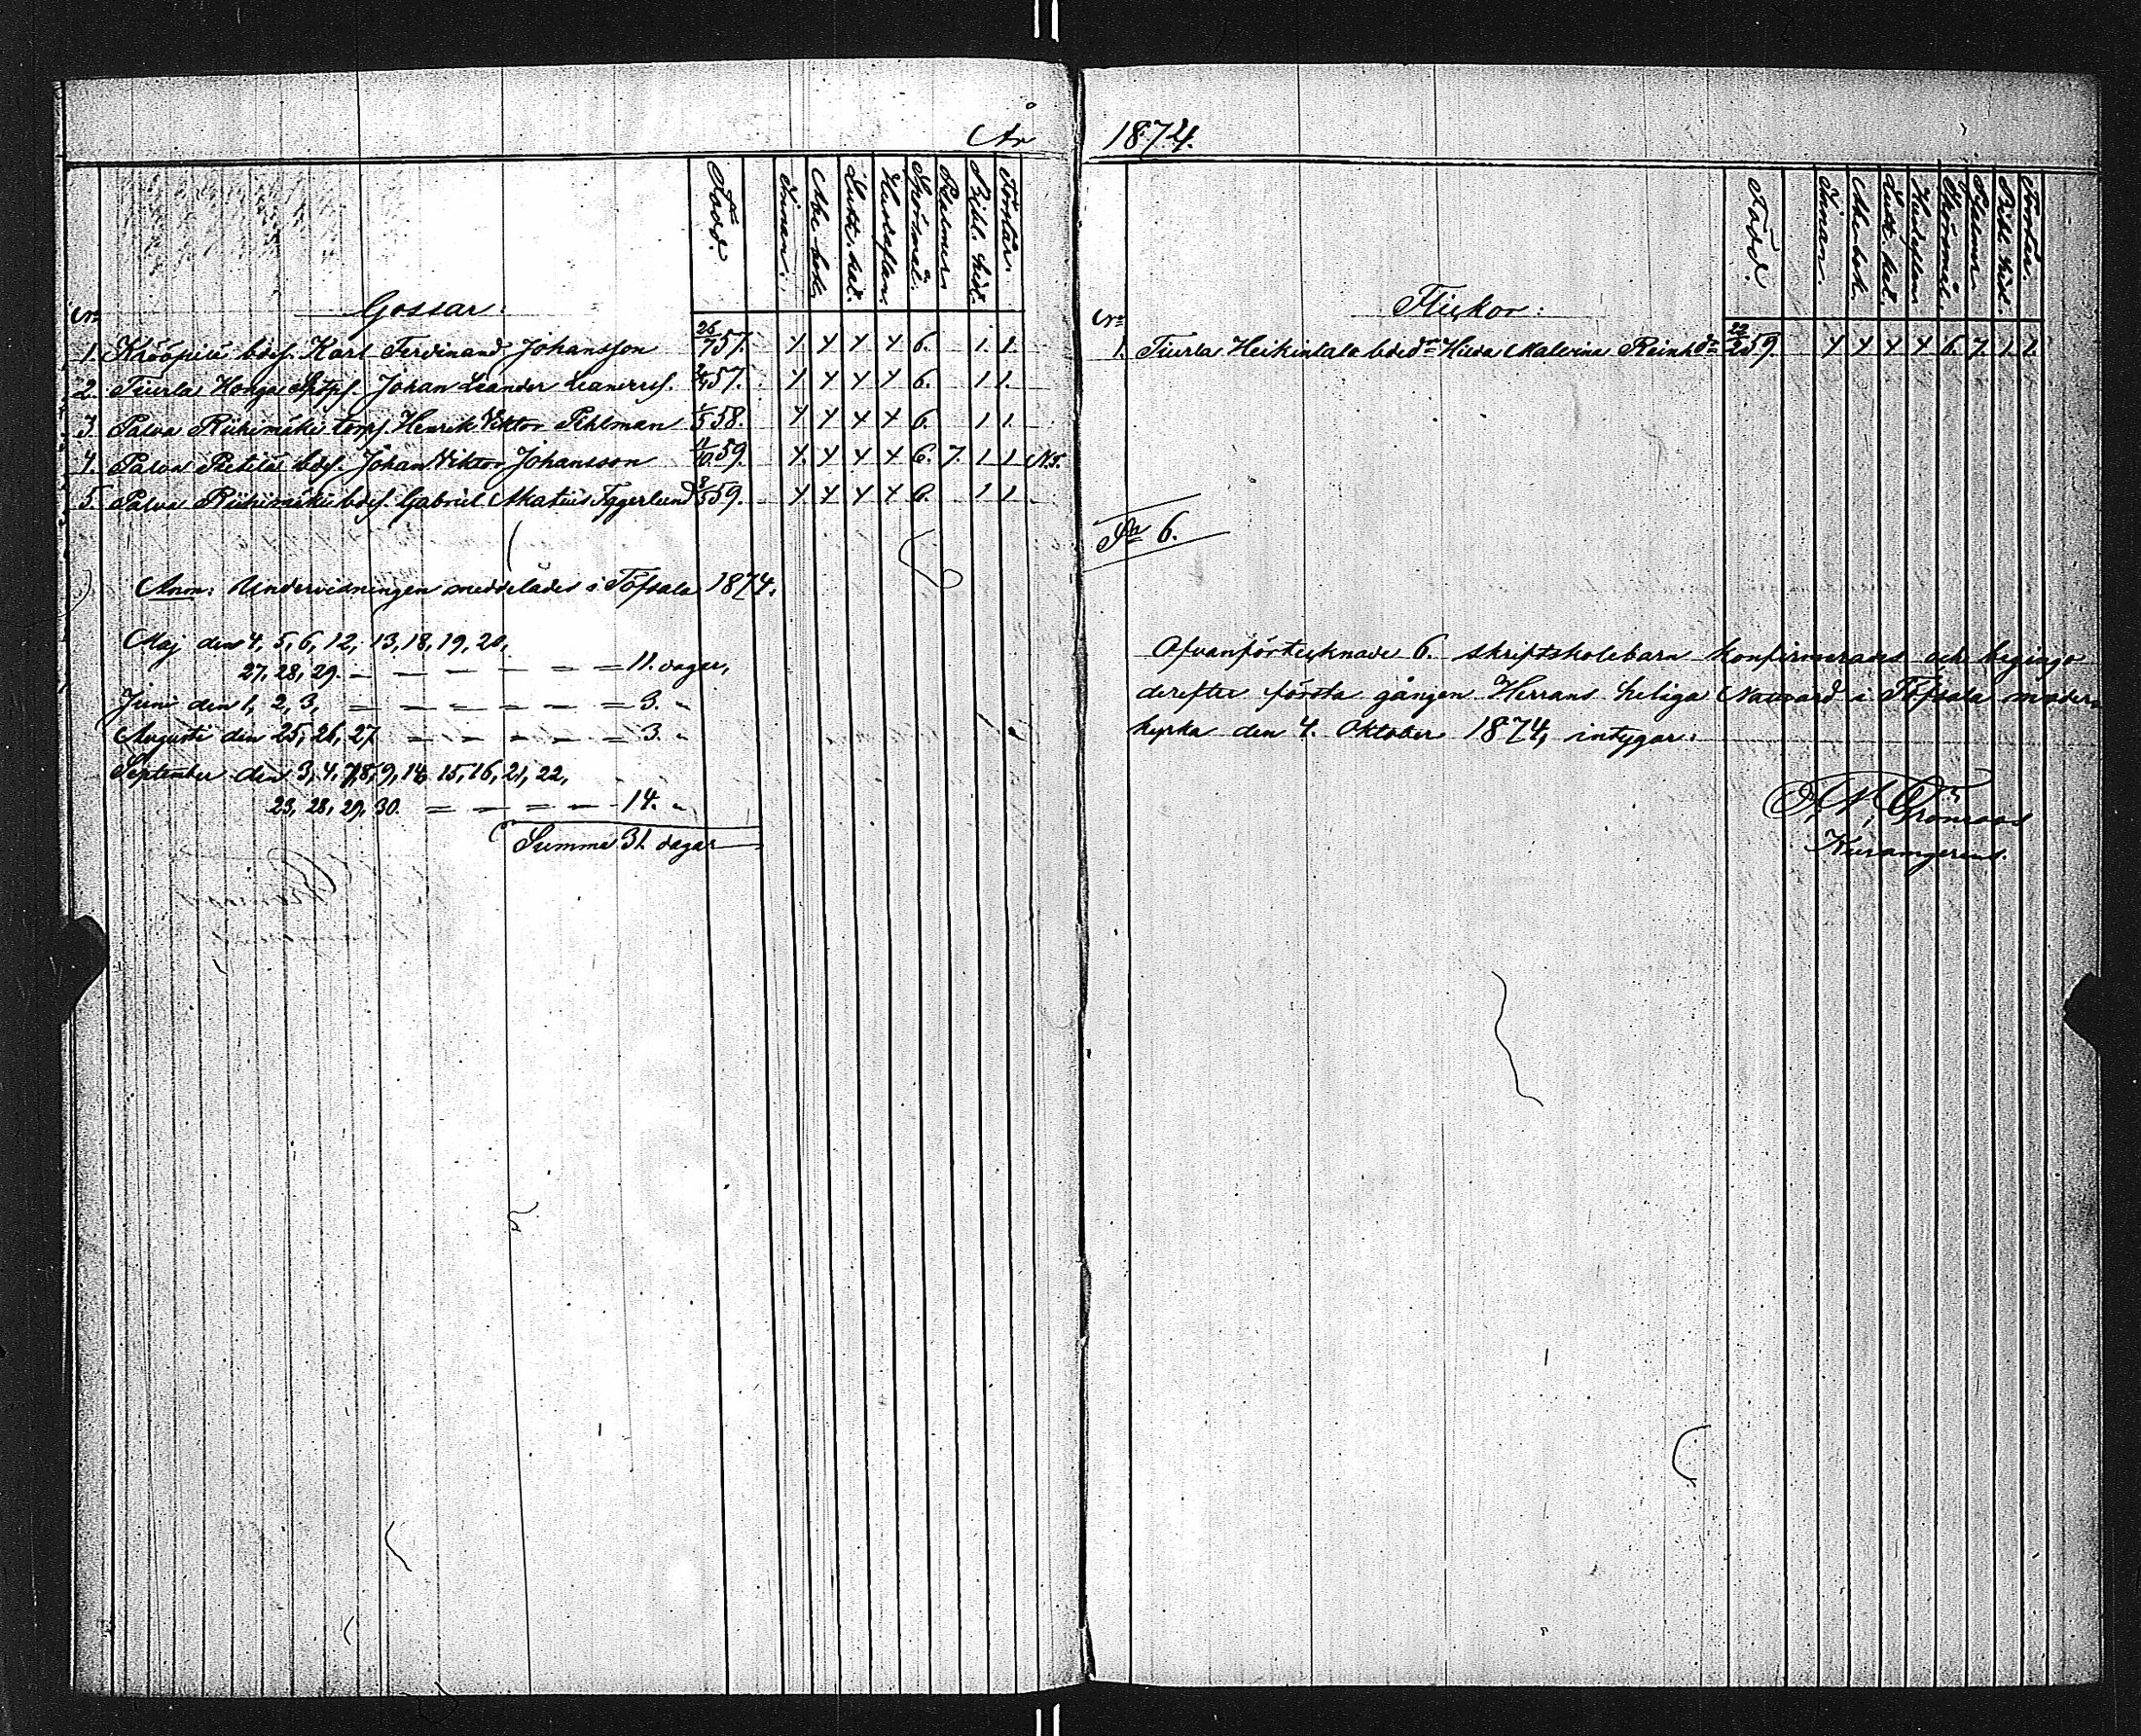 År 1874.
Gossar:
No Född. Innan. Abc-bok. Luth. kat. Hustaflan. Spörsmål. Psalmer Bibl. hist. Förstår.
1. Krööpilä bdes. Karl Ferdinand Johansson 26/7 57. x x x x 6. 1. 1.
2. Tiurla Honga Johan Leander 57. x x x x 6. 1 1.
3. Palva Riihimäki Henrik Viktor Pihlman 1/5 58. x x x x 6. 1 1.
4. Palva Pietilä bdes. Johan Viktor Johansson 11/10 59. x x x x 6. 7. 1 1
5. Palva Riihimäki bdes. Gabriel Matias Iggerlund 8/5 59. x x x x 6. 1 1
Anm: Undervisningen meddelades i Töfsala 1874.
Maj den 4, 5, 6, 12, 13, 18, 19, 20,
27, 28, 29. — — — — — 11. dagar,
Juni den 1, 2, 3, — — — — — 3. "
Augusti den 25, 26, 27 — — — — — 3. "
September den 3, 4, 7, 8, 9, 14, 15, 16, 21, 22,
23, 28, 29, 30. — — — — 14. "
Summa 31 dagar
Flickor:
No Född. Innan. Abc-bok. Luth. kat. Hustaflan Spörsmål. Psalmer Bibl. hist. Förstår.
1. Tiurla Heikintalo Hilda Malvina Reinh.dr 59. x x x x 6. 7. 1. 1.
Sa 6.
Ofvanförtecknade 6. skriftskolebarn konfirmerades och begingo
derefter första gången Herrans heliga Nattvard i Töfsala moder-
kyrka den 4. Oktober 1874, intygar:
Grönroos